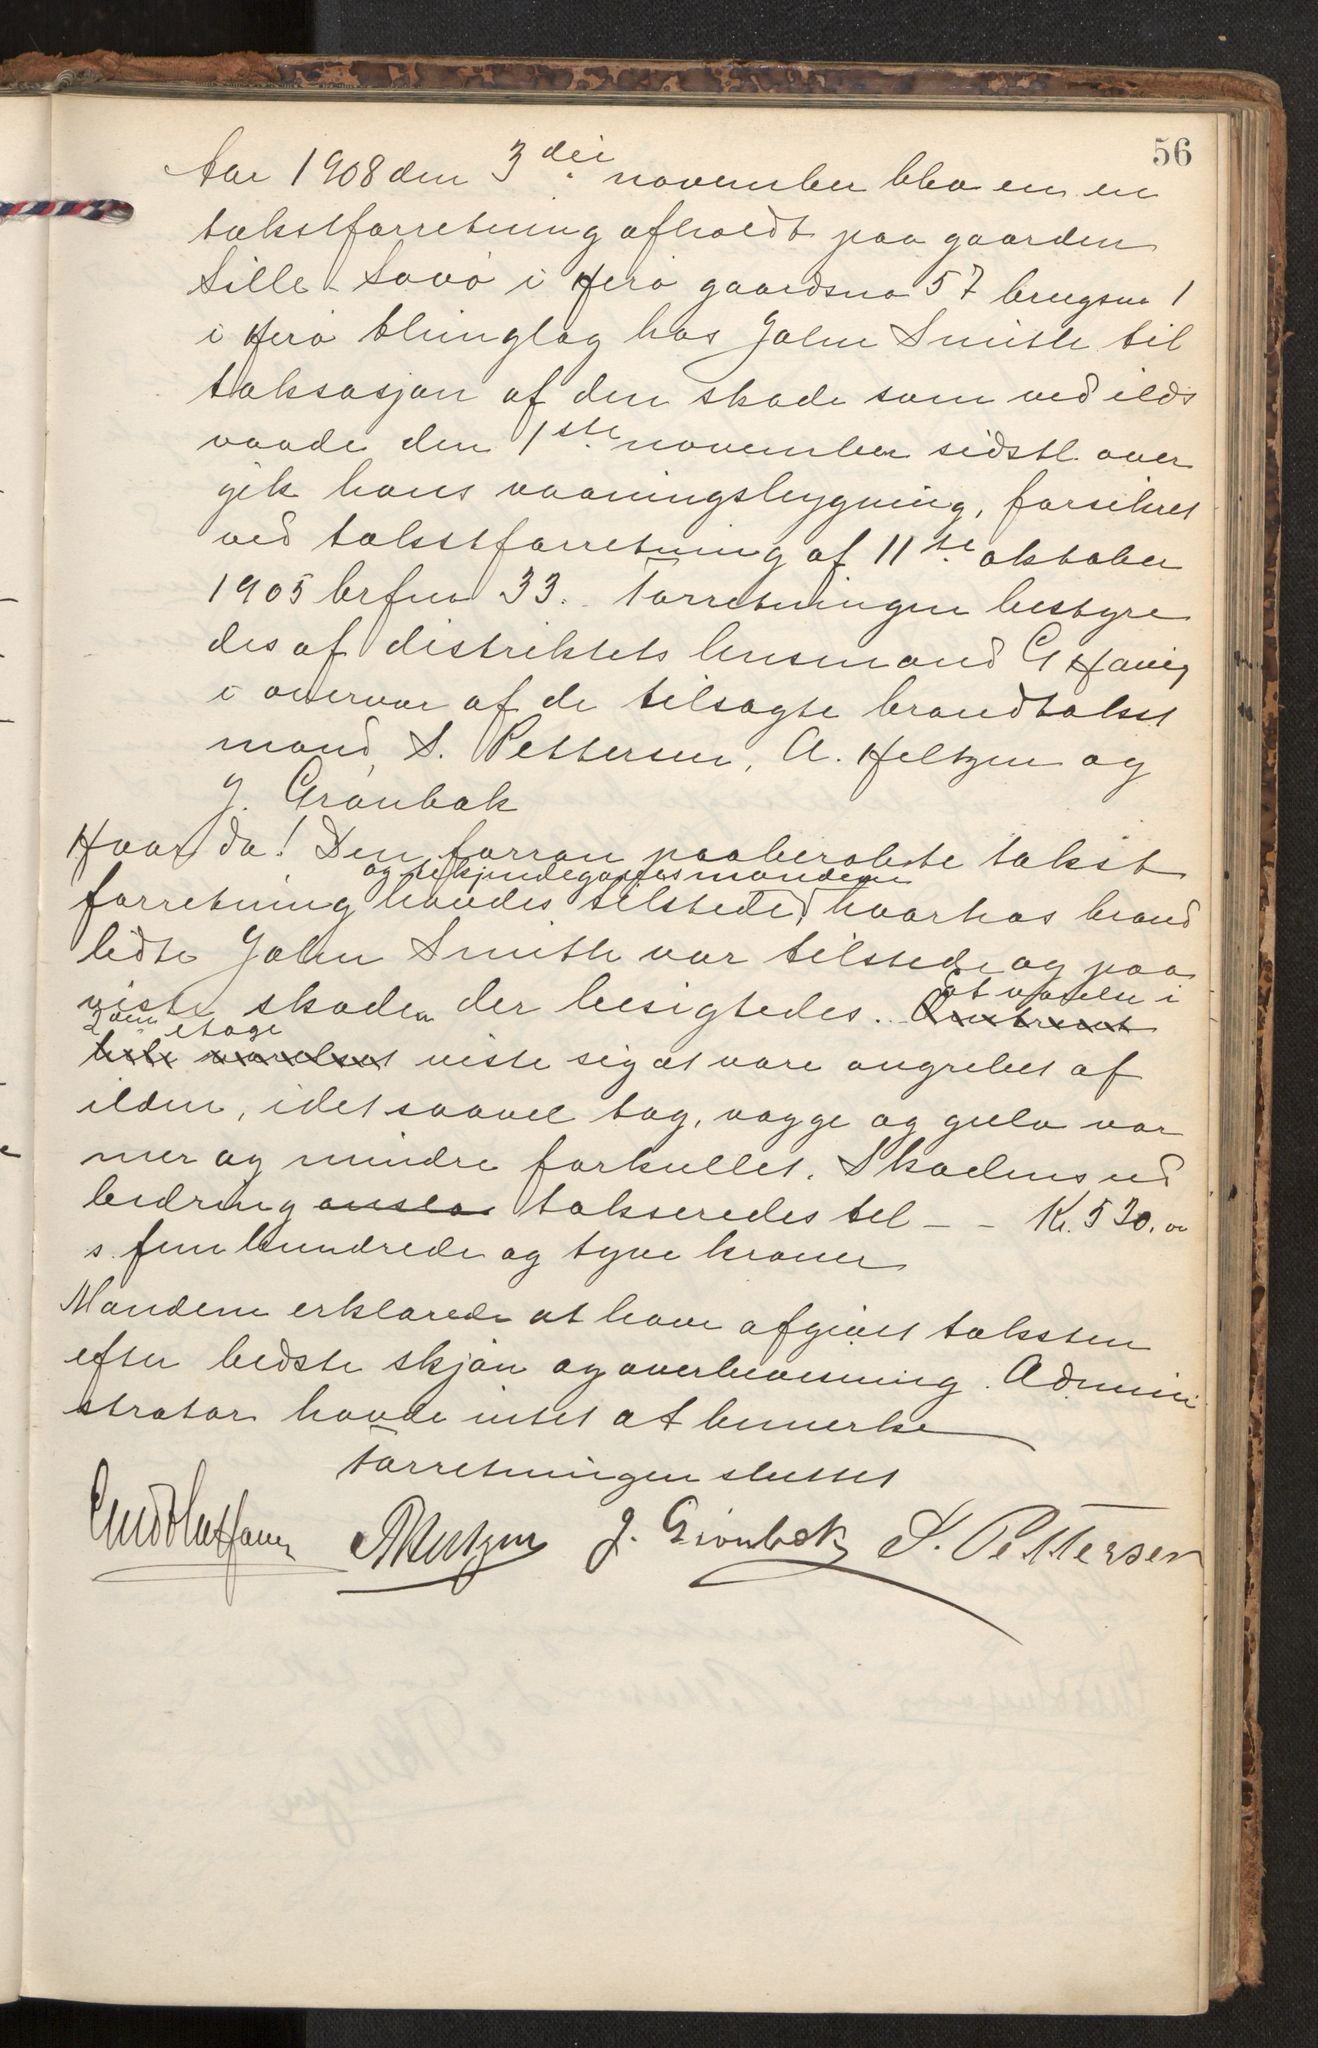 56
Aar 1908 den 3die november blev en en
takstforretning afholdt paa gaarden
Sille Søvø i Herø gaardsno 57 brugsno 1
i Herø thinglag hos John Smith til
taksasjon af den skade som ved ilds
vaade den 1ste november sidstl. over
gik hans vaaningsbygning, forsikret
ved takstforretning af 11te oktober
1905 brfno 33. Forretningen bestyre
des af distriktets lensmand G Havig
i overvær af de tilsagte brandtakst
mænd, S. Pettersen, A. Heltzen og
J. Grønbæk
Hvor da! Den forran paaberobte takst
og de kjendegodtesmændene
forretning havdes tilstede, hvorhos brand
lidte John Smith var tilstede og paa
viste skaden der besigtedes. Et værelse i
2den etage
hele værelset viste sig at være angrebet af
ilden, idet saavel tag, vægge og gulv var
mer og mindre forkullet. Skadens ud
bedring ansla takseredes til - - Kr. 520.00
s. fem hundrede og tyve kroner
Mændene erklærede at have afgivet taksten
efter bedste skjøn og overbevisning. Admini
strator havde intet at bemerke
Forretningen sluttet
A Heltzen J. Grønbæk S. Pettersen